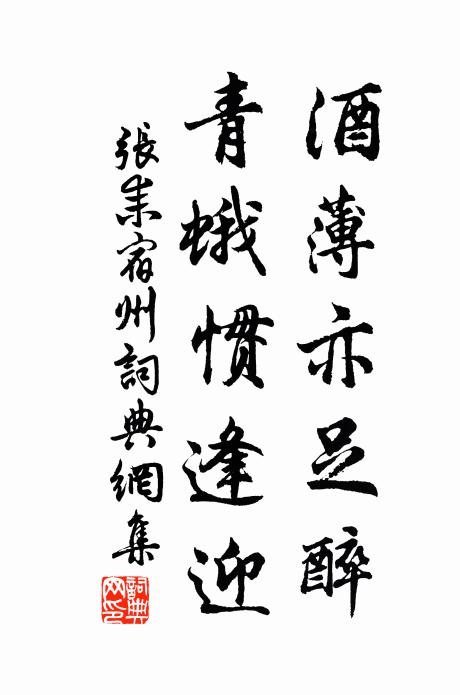 酒薄亦足醉
青蛾慣逢迎
張耒宿州詞典網集
詞典網印